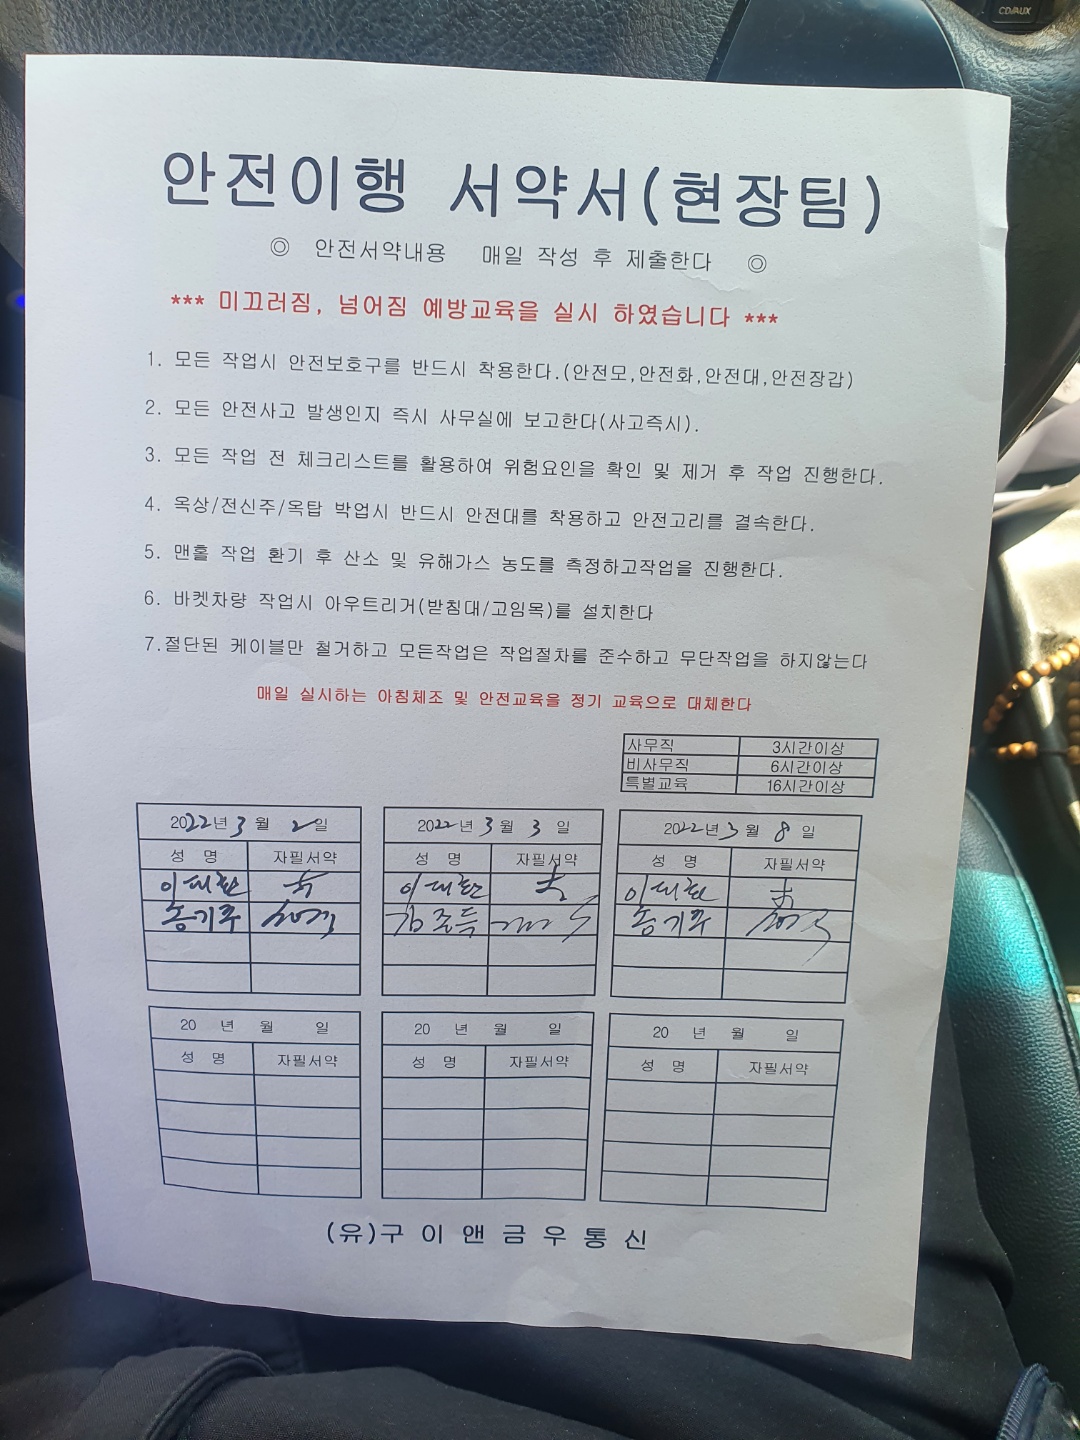 CD/AUX
안전이행 서약서(현장팀)
◎ 안전서약내용 매일 작성 후 제출한다 ◎
*** 미끄러짐, 넘어짐 예방교육을 실시 하였습니다 ***
1. 모든 작업시 안전보호구를 반드시 착용한다.(안전모,안전화,안전대,안전장갑)
2. 모든 안전사고 발생인지 즉시 사무실에 보고한다(사고즉시).
3. 모든 작업 전 체크리스트를 활용하여 위험요인을 확인 및 제거 후 작업 진행한다.
4. 옥상/전신주/옥탑 박업시 반드시 안전대를 착용하고 안전고리를 결속한다.
5. 맨홀 작업 환기 후 산소 및 유해가스 농도를 측정하고작업을 진행한다.
6. 바켓차량 작업시 아우트리거(받침대/고임목)를 설치한다
7.절단된 케이블만 철거하고 모든작업은 작업절차를 준수하고 무단작업을 하지않는다
매일 실시하는 아침체조 및 안전교육을 정기 교육으로 대체한다
사무직 3시간이상
비사무직 6시간이상
특별교육 16시간이상
2022년 3월 2일 2022년 3월 3일 2022년 3월 8일
성 명 자필서약 성 명 자필서약 성 명 자필서약
이대환 이대환 이대환
송기주 김준득 송기주
20 년 월 일 20 년 월 일 20 년 월 일
성 명 자필서약 성 명 자필서약 성 명 자필서약
(유)구이앤금우통신